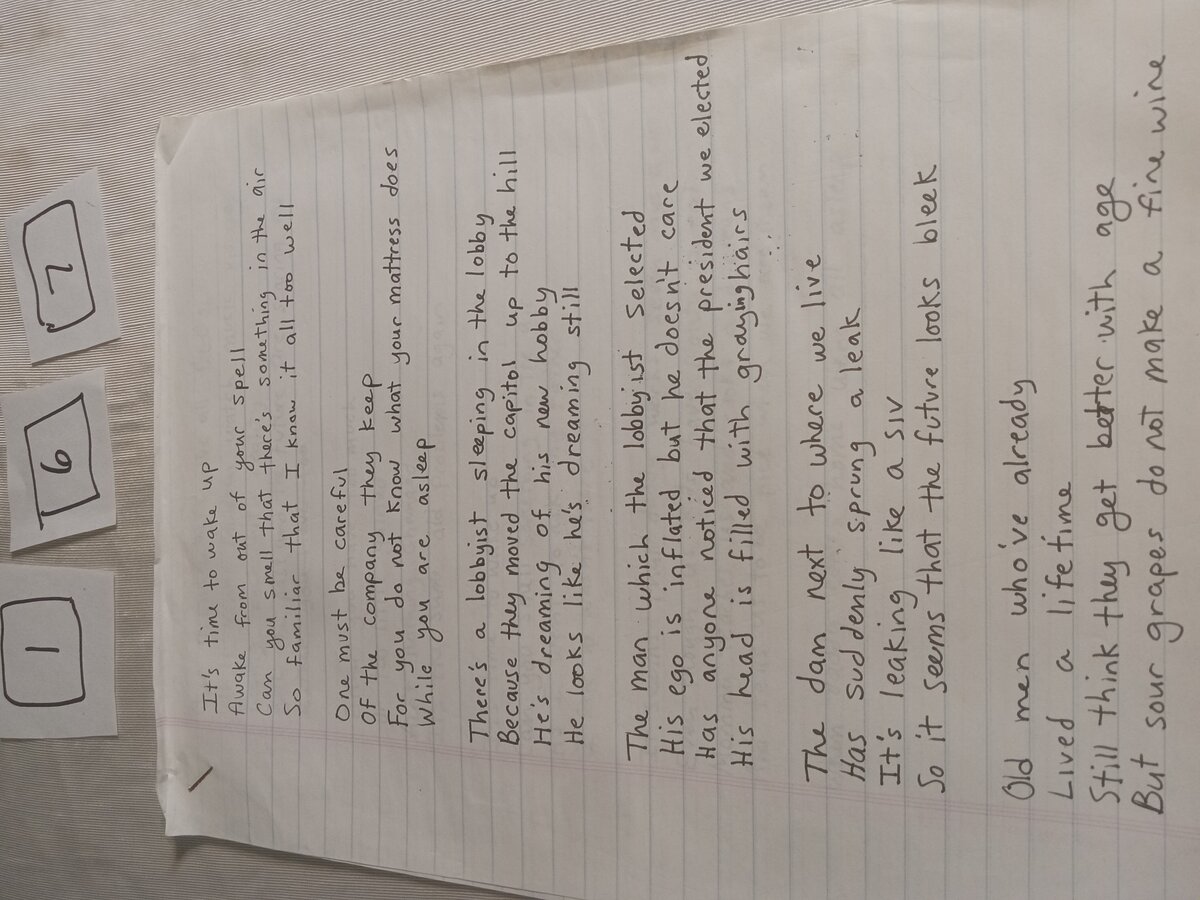 1 6 7
It's time to wake up
Awake from out of your spell
Can you smell that there's something in the air
So familiar that I know it all too well
One must be careful
Of the company they keep
For you do not know what your mattress does
While you are asleep
There's a lobbyist sleeping in the lobby
Because they moved the capitol up to the hill
He's dreaming of his new hobby
He looks like he's dreaming still
The man which the lobbyist selected
His ego is inflated but he doesn't care
Has anyone noticed that the president we elected
His head is filled with graying hairs
The dam next to where we live
Has suddenly sprung a leak
It's leaking like a siv
So it seems that the future looks bleek
Old men who've already
Lived a lifetime
Still think they get better with age
But sour grapes do not make a fine wine